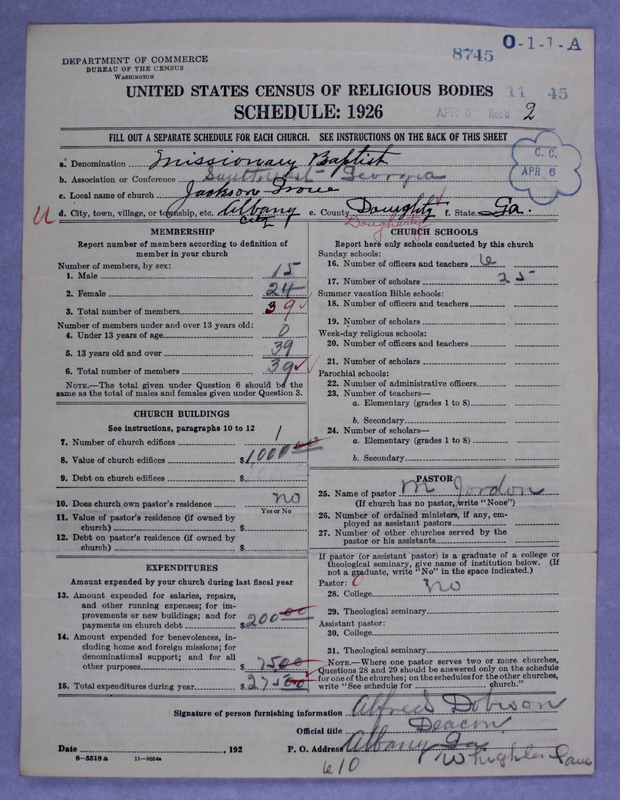 O-1-1-A
8745
DEPARTMENT OF COMMERCE
BUREAU OF THE CENSUS
WASHINGTON
11 45
UNITED STATES CENSUS OF RELIGIOUS BODIES
SCHEDULE: 1926
APR 6 Rec'd 2
FILL OUT A SEPARATE SCHEDULE FOR EACH CHURCH. SEE INSTRUCTIONS ON THE BACK OF THIS SHEET
C. C.
APR 6
a. Denomination Missionary Baptist
b. Association or Conference Southwest Georgia
c. Local name of church Jackson Grove
d. City, town, village, or township, etc. Albany e. County Doughty f. State Ga.
City
Dougherty
MEMBERSHIP
Report number of members according to definition of
member in your church
Number of members, by sex:
1. Male 15
2. Female 24
3. Total number of members 39
Number of members under and over 13 years old:
4. Under 13 years of age 0
5. 13 years old and over 39
6. Total number of members 39
NOTE.—The total given under Question 6 should be the
same as the total of males and females given under Question 3.
CHURCH BUILDINGS
See instructions, paragraphs 10 to 12
7. Number of church edifices 1
8. Value of church edifices $1,000 00
9. Debt on church edifices $
10. Does church own pastor's residence no
Yes or No
11. Value of pastor's residence (if owned by
church) $
12. Debt on pastor's residence (if owned by
church) $
EXPENDITURES
Amount expended by your church during last fiscal year
13. Amount expended for salaries, repairs,
and other running expenses; for im-
provements or new buildings; and for
payments on church debt $200 00
14. Amount expended for benevolences, in-
cluding home and foreign missions; for
denominational support; and for all
other purposes $75 00
15. Total expenditures during year $275 00
CHURCH SCHOOLS
Report here only schools conducted by this church
Sunday schools:
16. Number of officers and teachers 6
17. Number of scholars 25
Summer vacation Bible schools:
18. Number of officers and teachers
19. Number of scholars
Week-day religious schools:
20. Number of officers and teachers
21. Number of scholars
Parochial schools:
22. Number of administrative officers
23. Number of teachers—
a. Elementary (grades 1 to 8)
b. Secondary
24. Number of scholars—
a. Elementary (grades 1 to 8)
b. Secondary
PASTOR
25. Name of pastor M Jordon
(If church has no pastor, write "None")
26. Number of ordained ministers, if any, em-
ployed as assistant pastors
27. Number of other churches served by the
pastor or his assistants
If pastor (or assistant pastor) is a graduate of a college or
theological seminary, give name of institution below. (If
not a graduate, write "No" in the space indicated.)
Pastor:
28. College no
29. Theological seminary
Assistant pastor:
30. College
31. Theological seminary
NOTE.—Where one pastor serves two or more churches,
Questions 28 and 29 should be answered only on the schedule
for one of the churches; on the schedules for the other churches,
write "See schedule for church."
Signature of person furnishing information Alfred Dobison
Official title Deacon
Date , 192 P. O. Address Albany Ga
8-5518 a
610